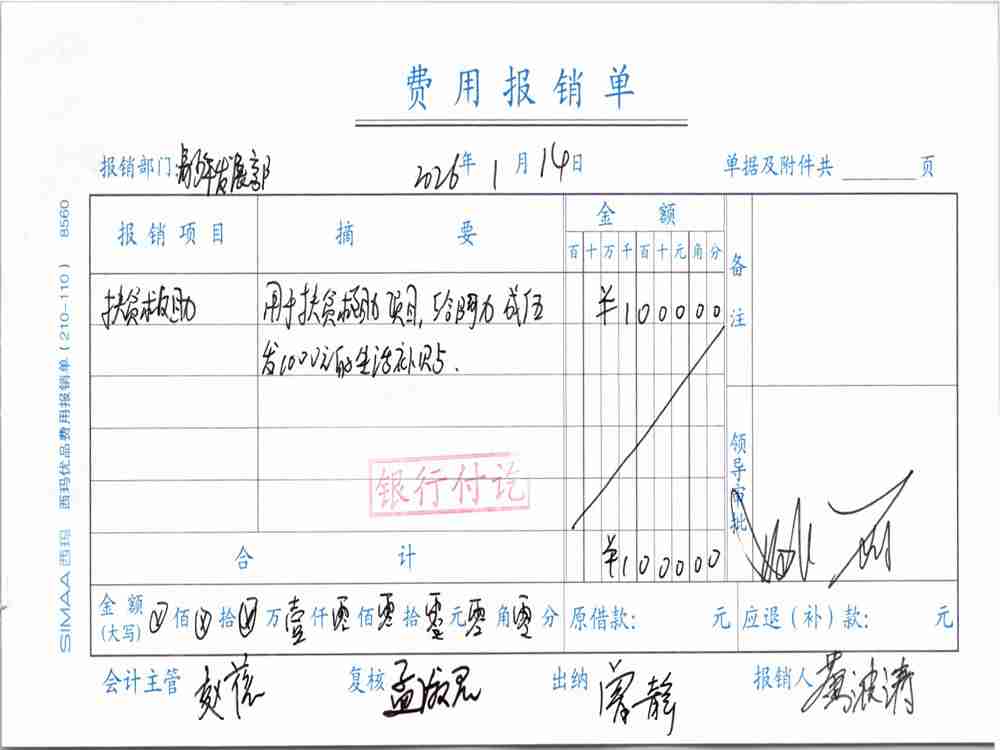 费用报销单
报销部门: 年发展部 2026年 1月 14日 单据及附件共 页
报销项目 摘要 金额 备注
百 十 万 千 百 十 元 角 分
扶贫救助 用于扶贫救助项目,给 成伍 ¥100000
发1000元的生活补贴.
银行付讫
领导审批
合计 ¥100000
金额(大写) 佰 拾 万 壹仟 零佰 零拾 零元 零角 零分 原借款: 元 应退(补)款: 元
会计主管 赵 复核 孟淑君 出纳 曾静 报销人 黄波涛
SIMAA西玛 西玛优品费用报销单(210-110) 8560